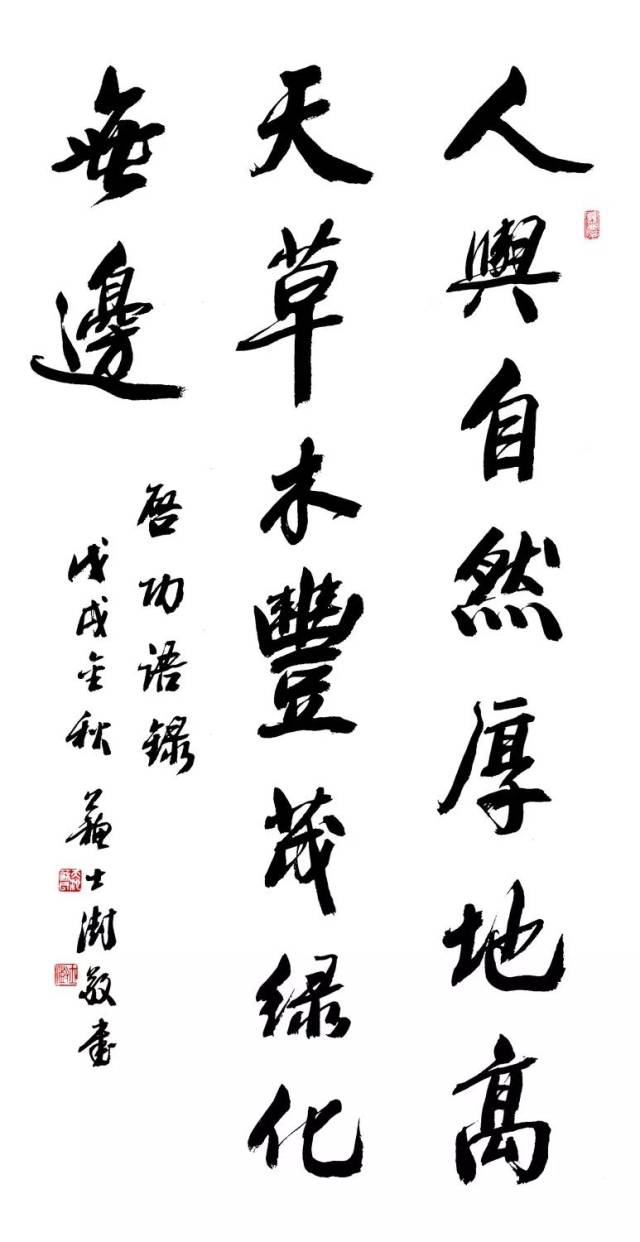 人與自然厚地高
天草木豐茂绿化
無邊
启功语録
戊戌金秋 蘇士澍敬書